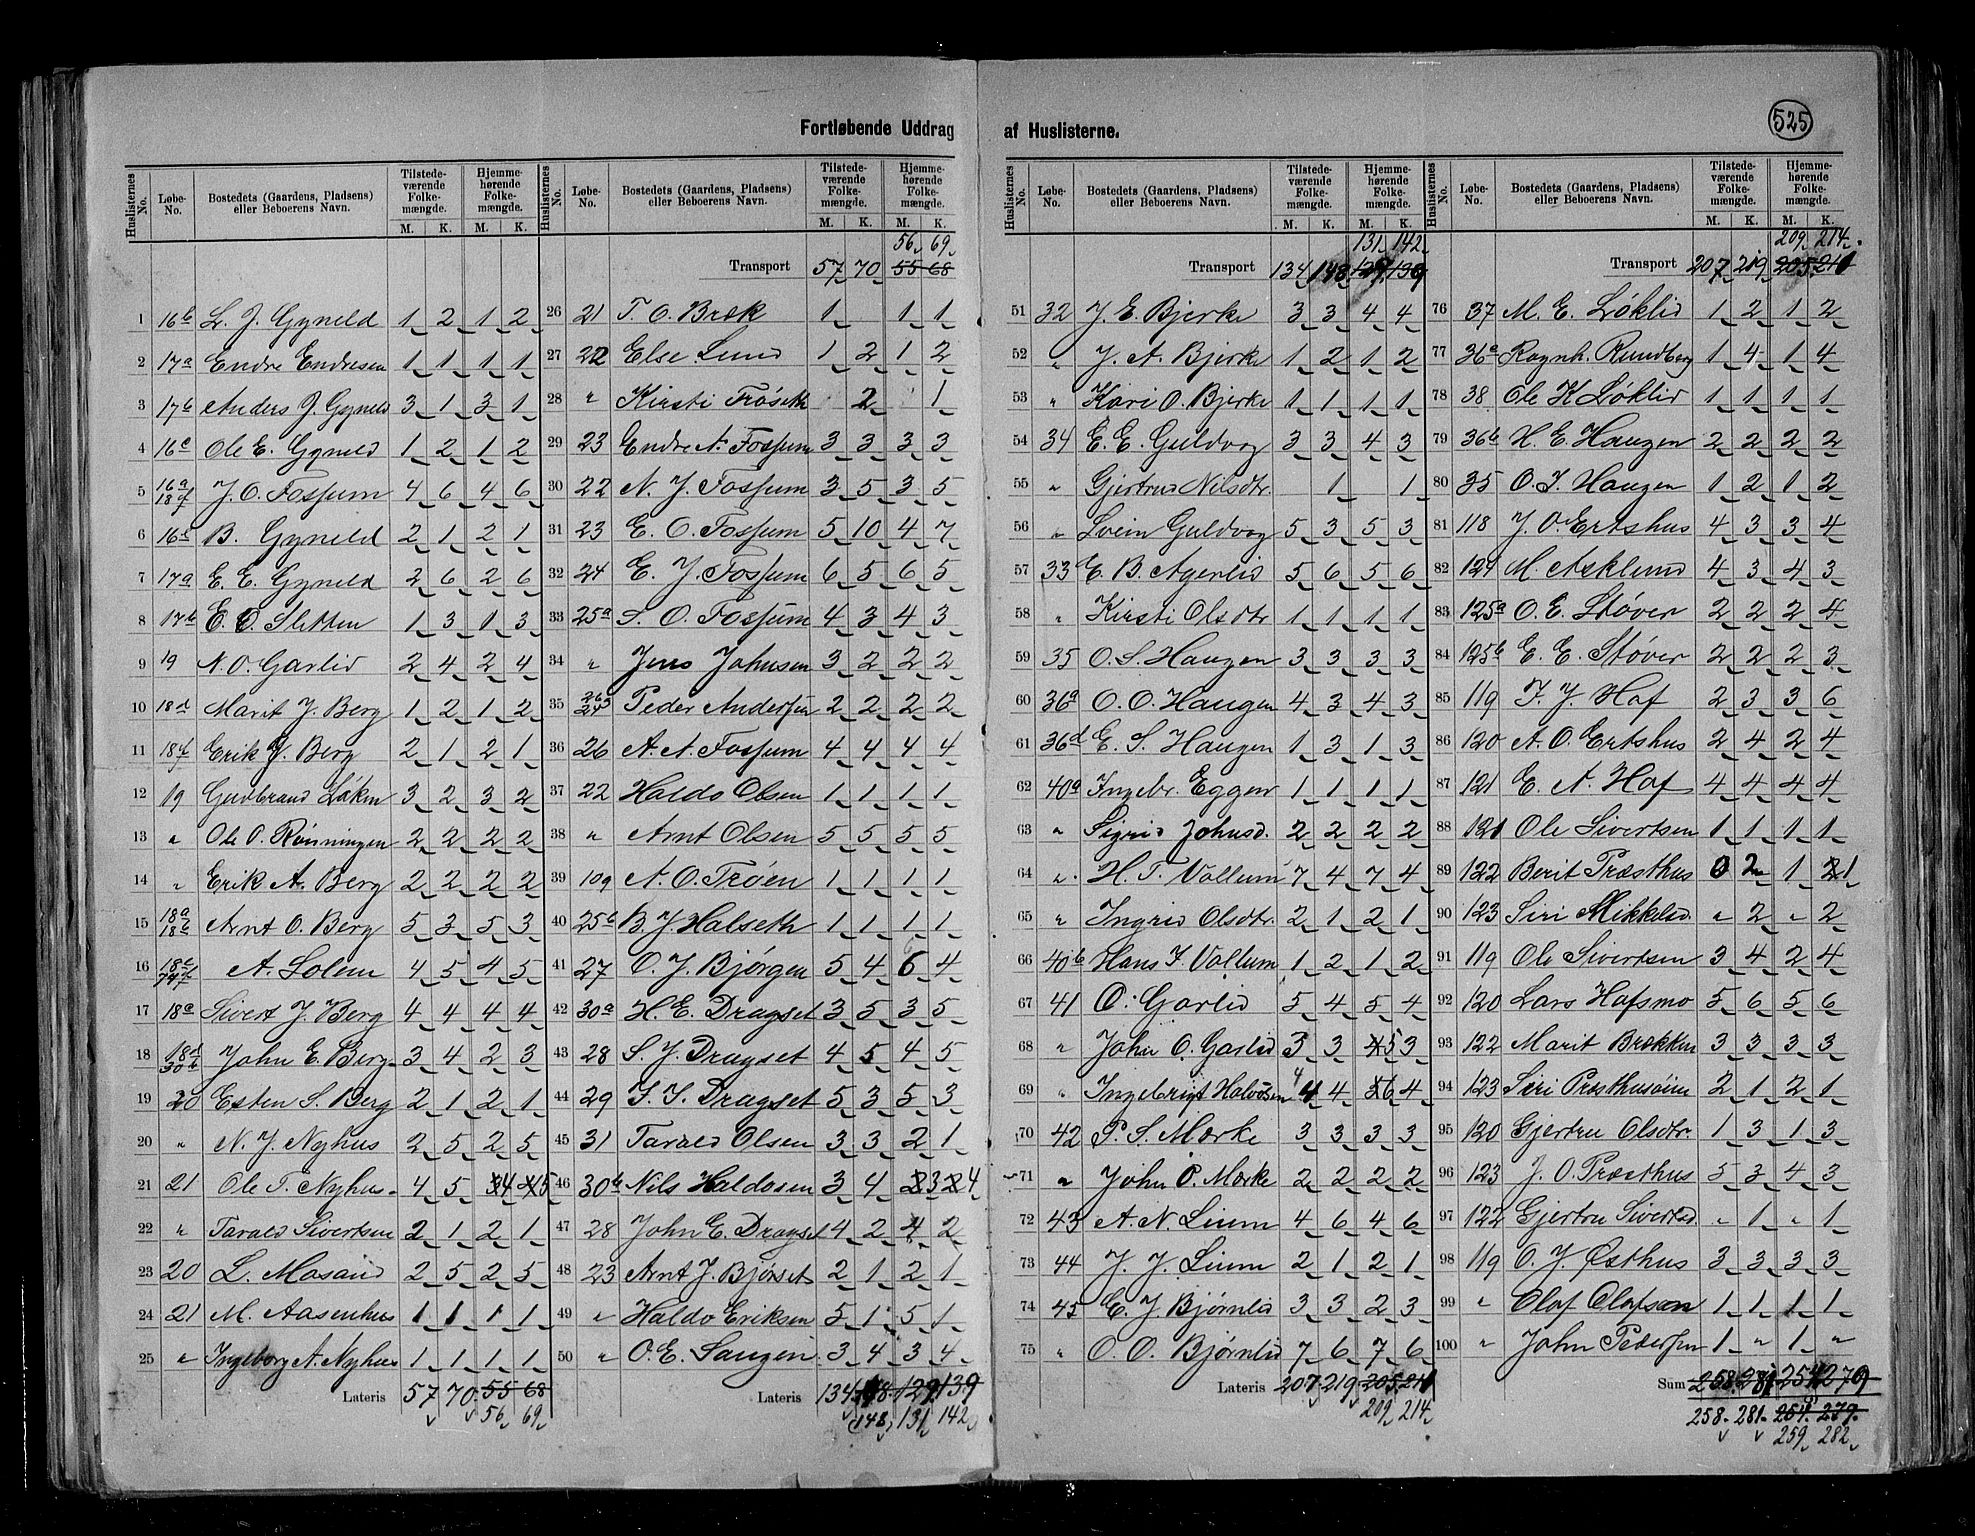 Fortløbende Uddrag af Huslisterne.
525
Huslisternes No. Løbe-No. Bostedets (Gaardens, Pladsens) eller Beboerens Navn. Tilstedeværende Folkemængde. M. K. Hjemmehørende Folkemængde. M. K.
1 16b L. J. Gyneld 1 2 1 2
2 17a Endre Endresen 1 1 1 1
3 17b Anders J. Gyneld 3 1 3 1
4 16c Ole E. Gyneld 1 2 1 2
5 16a 18f J. O. Fossum 4 6 4 6
6 16b B. Gyneld 2 1 2 1
7 17a E. E. Gyneld 2 6 2 6
8 17b E. O. Sletten 1 3 1 3
9 19 N. O. Garlid 2 4 2 4
10 18d Marit J. Berg 1 2 1 2
11 18f Erik J. Berg 2 1 2 1
12 19 Gudbrand Løken 3 2 3 2
13 " Ole O. Rønningen 2 2 2 2
14 " Erik A. Berg 2 2 2 2
15 18a 18b Arnt O. Berg 5 3 5 3
16 18c A. Solem 4 5 4 5
17 18a Sivert J. Berg 4 4 4 4
18 18d 30b John E. Berg 3 4 2 3
19 20 Esten S. Berg 2 1 2 1
20 " N. J. Nyhus 2 5 2 5
21 21 Ole T. Nyhus 4 5 4 5
22 " Tarald Sivertsen 2 1 2 1
23 20 L. Mosand 2 5 2 5
24 21 M. Aasenhus 1 1 1 1
25 " Ingeborg A. Nyhus 1 1 1 1
Lateris 57 70 55 68
56 69
Huslisternes No. Løbe-No. Bostedets (Gaardens, Pladsens) eller Beboerens Navn. Tilstedeværende Folkemængde. M. K. Hjemmehørende Folkemængde. M. K.
56 69
Transport 57 70 55 68
26 21 T. O. Bræk 1 1 1
27 22 Else Lund 1 2 1 2
28 " Kirsti Frøseth 2 1
29 23 Endre A. Fossum 3 3 3 3
30 22 N. J. Fossum 3 5 3 5
31 23 E. O. Fossum 5 10 4 7
32 24 E. J. Fossum 6 5 6 5
33 25a S. O. Fossum 4 3 4 3
34 " Jens Johnsen 3 2 2 2
35 Peder Andersen 2 2 2 2
36 26 A. A. Fossum 4 4 4 4
37 22 Haldo Olsen 1 1 1 1
38 " Arnt Olsen 5 5 5 5
39 109 A. O. Trøen 1 1 1 1
40 25b B. J. Halseth 1 1 1 1
41 27 O. J. Bjørgen 5 4 6 4
42 30a H. E. Dragset 3 5 3 5
43 28 S. J. Dragset 4 5 4 5
44 29 S. S. Dragset 5 3 5 3
45 31 Tarald Olsen 3 3 2 1
46 30b Nils Haldosen 3 4 3 4
47 28 John E. Dragset 4 2 4 2
48 23 Arnt J. Bjørset 2 1 2 1
49 " Haldo Eriksen 5 1 5 1
50 " O. E. Saugen 3 4 3 4
Lateris 134 148 129 139
148 131 142
Huslisternes No. Løbe-No. Bostedets (Gaardens, Pladsens) eller Beboerens Navn. Tilstedeværende Folkemængde. M. K. Hjemmehørende Folkemængde. M. K.
131 142
Transport 134 148 129 139
51 32 J. E. Bjerke 3 3 4 4
52 " J. A. Bjerke 1 2 1 2
53 " Kari O. Bjerke 1 1 1 1
54 34 E. E. Guldvog 3 3 4 3
55 " Gjertrud Nilsdtr. 1 1
56 " Svein Guldvog 5 3 5 3
57 33 E. B. Agenlid 5 6 5 6
58 " Kirsti Olsdtr 1 1 1 1
59 35 O. S. Haugen 3 3 3 3
60 36a O. O. Haugen 4 3 4 3
61 36d E. S. Haugen 1 3 1 3
62 40a Ingebr. Eggen 1 1 1 1
63 " Sigrid Johnsd. 2 2 2 2
64 " H. T. Vollum 7 4 7 4
65 " Ingrid Olsdtr. 2 1 2 1
66 40b Hans T. Vollum 1 2 1 2
67 41 O. Garlid 5 4 5 4
68 " John O. Garlid 3 3 5 3
69 " Ingebrigt Halvorsen 4 4 6 4
70 42 P. S. Mørke 3 3 3 3
71 " John P. Mørke 2 2 2 2
72 43 A. N. Lium 4 6 4 6
73 44 J. J. Lium 2 1 2 1
74 45 E. J. Bjørnli 3 3 2 3
75 " O. O. Bjørnlid 7 6 7 6
Lateris 207 219 205 211
209 214
Huslisternes No. Løbe-No. Bostedets (Gaardens, Pladsens) eller Beboerens Navn. Tilstedeværende Folkemængde. M. K. Hjemmehørende Folkemængde. M. K.
209 214
Transport 207 219 205 211
76 37 M. E. Løklid 1 2 1 2
77 36a Ragnh. Rundberg 1 4 1 4
78 38 Ole K. Løklid 1 1 1 1
79 36b H. E. Haugen 2 2 2 2
80 35 O. I. Haugen 1 2 1 2
81 118 J. O. Ertshus 4 3 3 4
82 124 M. Asklund 4 3 4 3
83 125a O. E. Støver 2 2 2 4
84 125b E. E. Støver 2 2 2 3
85 119 F. J. Hof 2 3 3 6
86 120 A. O. Ertshus 2 4 2 4
87 121 E. A. Hof 4 4 4 4
88 121 Ole Sivertsen 1 1 1 1
89 122 Berit Præsthus 0 2 1 1
90 123 Siri Mikkelsd. " 2 " 2
91 119 Ole Sivertsen 3 4 2 4
92 120 Lars Hafsmo 5 6 5 6
93 122 Marit Brækken 3 3 3 3
94 123 Siri Præsthusøien 2 1 2 1
95 120 Gjertru Olsdtr. 1 3 1 3
96 123 J. O. Præsthus 5 3 4 3
97 122 Gjertru Sivertsd " 1 " 1
98 119 O. J. Østhus 3 3 3 3
99 " Olaf Olafson 1 1 1 1
100 " John Pedersen 1 " 1 "
Sum 258 281 254 279
258 281 254 279
259 282